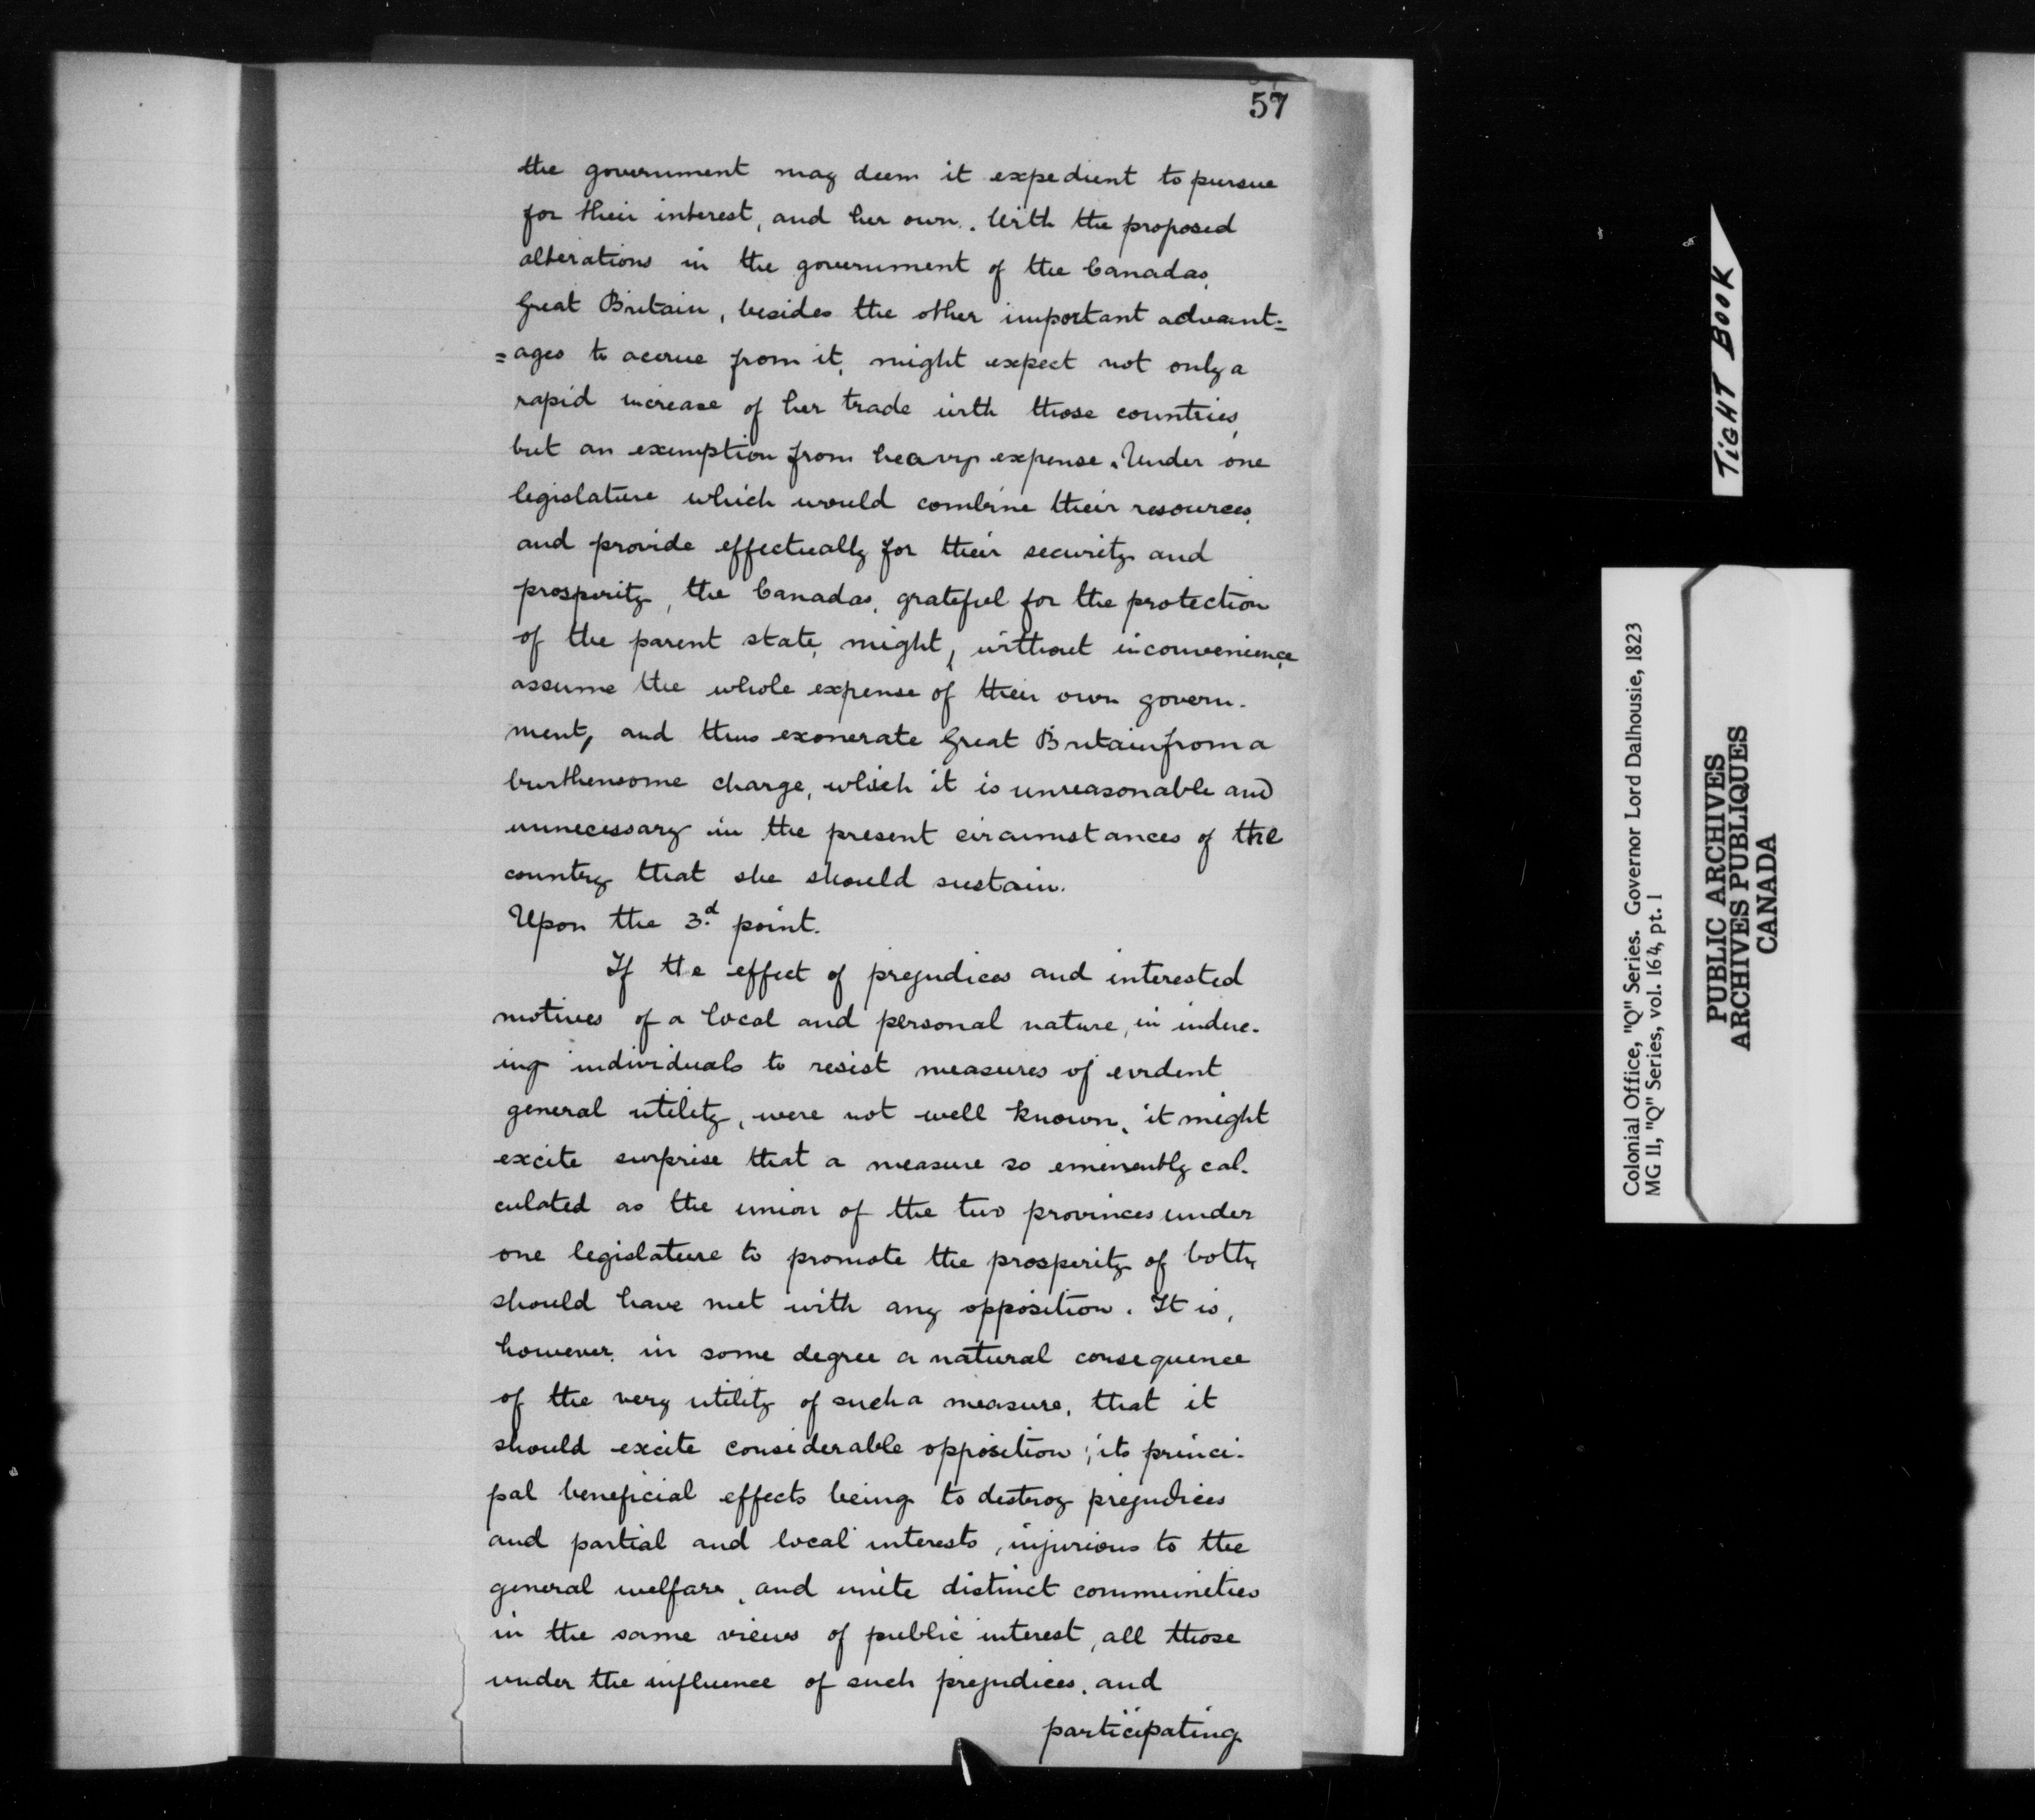 57
the government may deem it expedient to pursue
for their interest, and her own. With the proposed
alterations in the government of the Canadas,
Great Britain, besides the other important advant=
=ages to accrue from it, might expect not only a
rapid increase of her trade with those countries,
but an exemption from heavy expense. Under one
legislature which would combine their resources,
and provide effectually for their security and
prosperity, the Canadas, grateful for the protection
of the parent state, might, without inconvenience
assume the whole expense of their own govern-
ment, and thus exonerate Great Britain from a
burthensome charge, which it is unreasonable and
unnecessary in the present circumstances of the
country that she should sustain.
Upon the 3.d point.
If the effect of prejudices and interested
motives of a local and personal nature, in induc-
ing individuals to resist measures of evident
general utility, were not well known, it might
excite surprise that a measure so eminently cal-
culated as the union of the two provinces under
one legislature to promote the prosperity of both,
should have met with any opposition. It is,
however, in some degree a natural consequence
of the very utility of such a measure, that it
should excite considerable opposition; its princi-
pal beneficial effects being to destroy prejudices
and partial and local interests, injurious to the
general welfare, and unite distinct communities
in the same views of public interest, all those
under the influence of such prejudices, and
participating
TIGHT BOOK
Colonial Office, "Q" Series. Governor Lord Dalhousie, 1823
MG 11, "Q" Series, vol. 164, pt. 1
PUBLIC ARCHIVES
ARCHIVES PUBLIQUES
CANADA